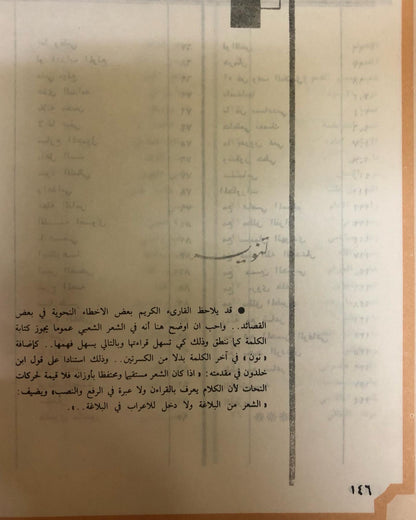 تنويه
● قد يلاحظ القارىء الكريم بعض الاخطاء النحوية في بعض
القصائد.. واحب ان اوضح هنا أنه في الشعر الشعبي عموما يجوز كتابة
الكلمة كما تنطق وذلك كي تسهل قراءتها وبالتالي يسهل فهمها.. كإضافة
«نون» في آخر الكلمة بدلا من الكسرتين.. وذلك استنادا على قول ابن
خلدون في مقدمته: «اذا كان الشعر مستقيما ومحتفظا بأوزانه فلا قيمة لحركات
النحات لأن الكلام يعرف بالقراءن ولا عبرة في الرفع والنصب» ويضيف:
«الشعر من البلاغة ولا دخل للاعراب في البلاغة..».
١٤٦